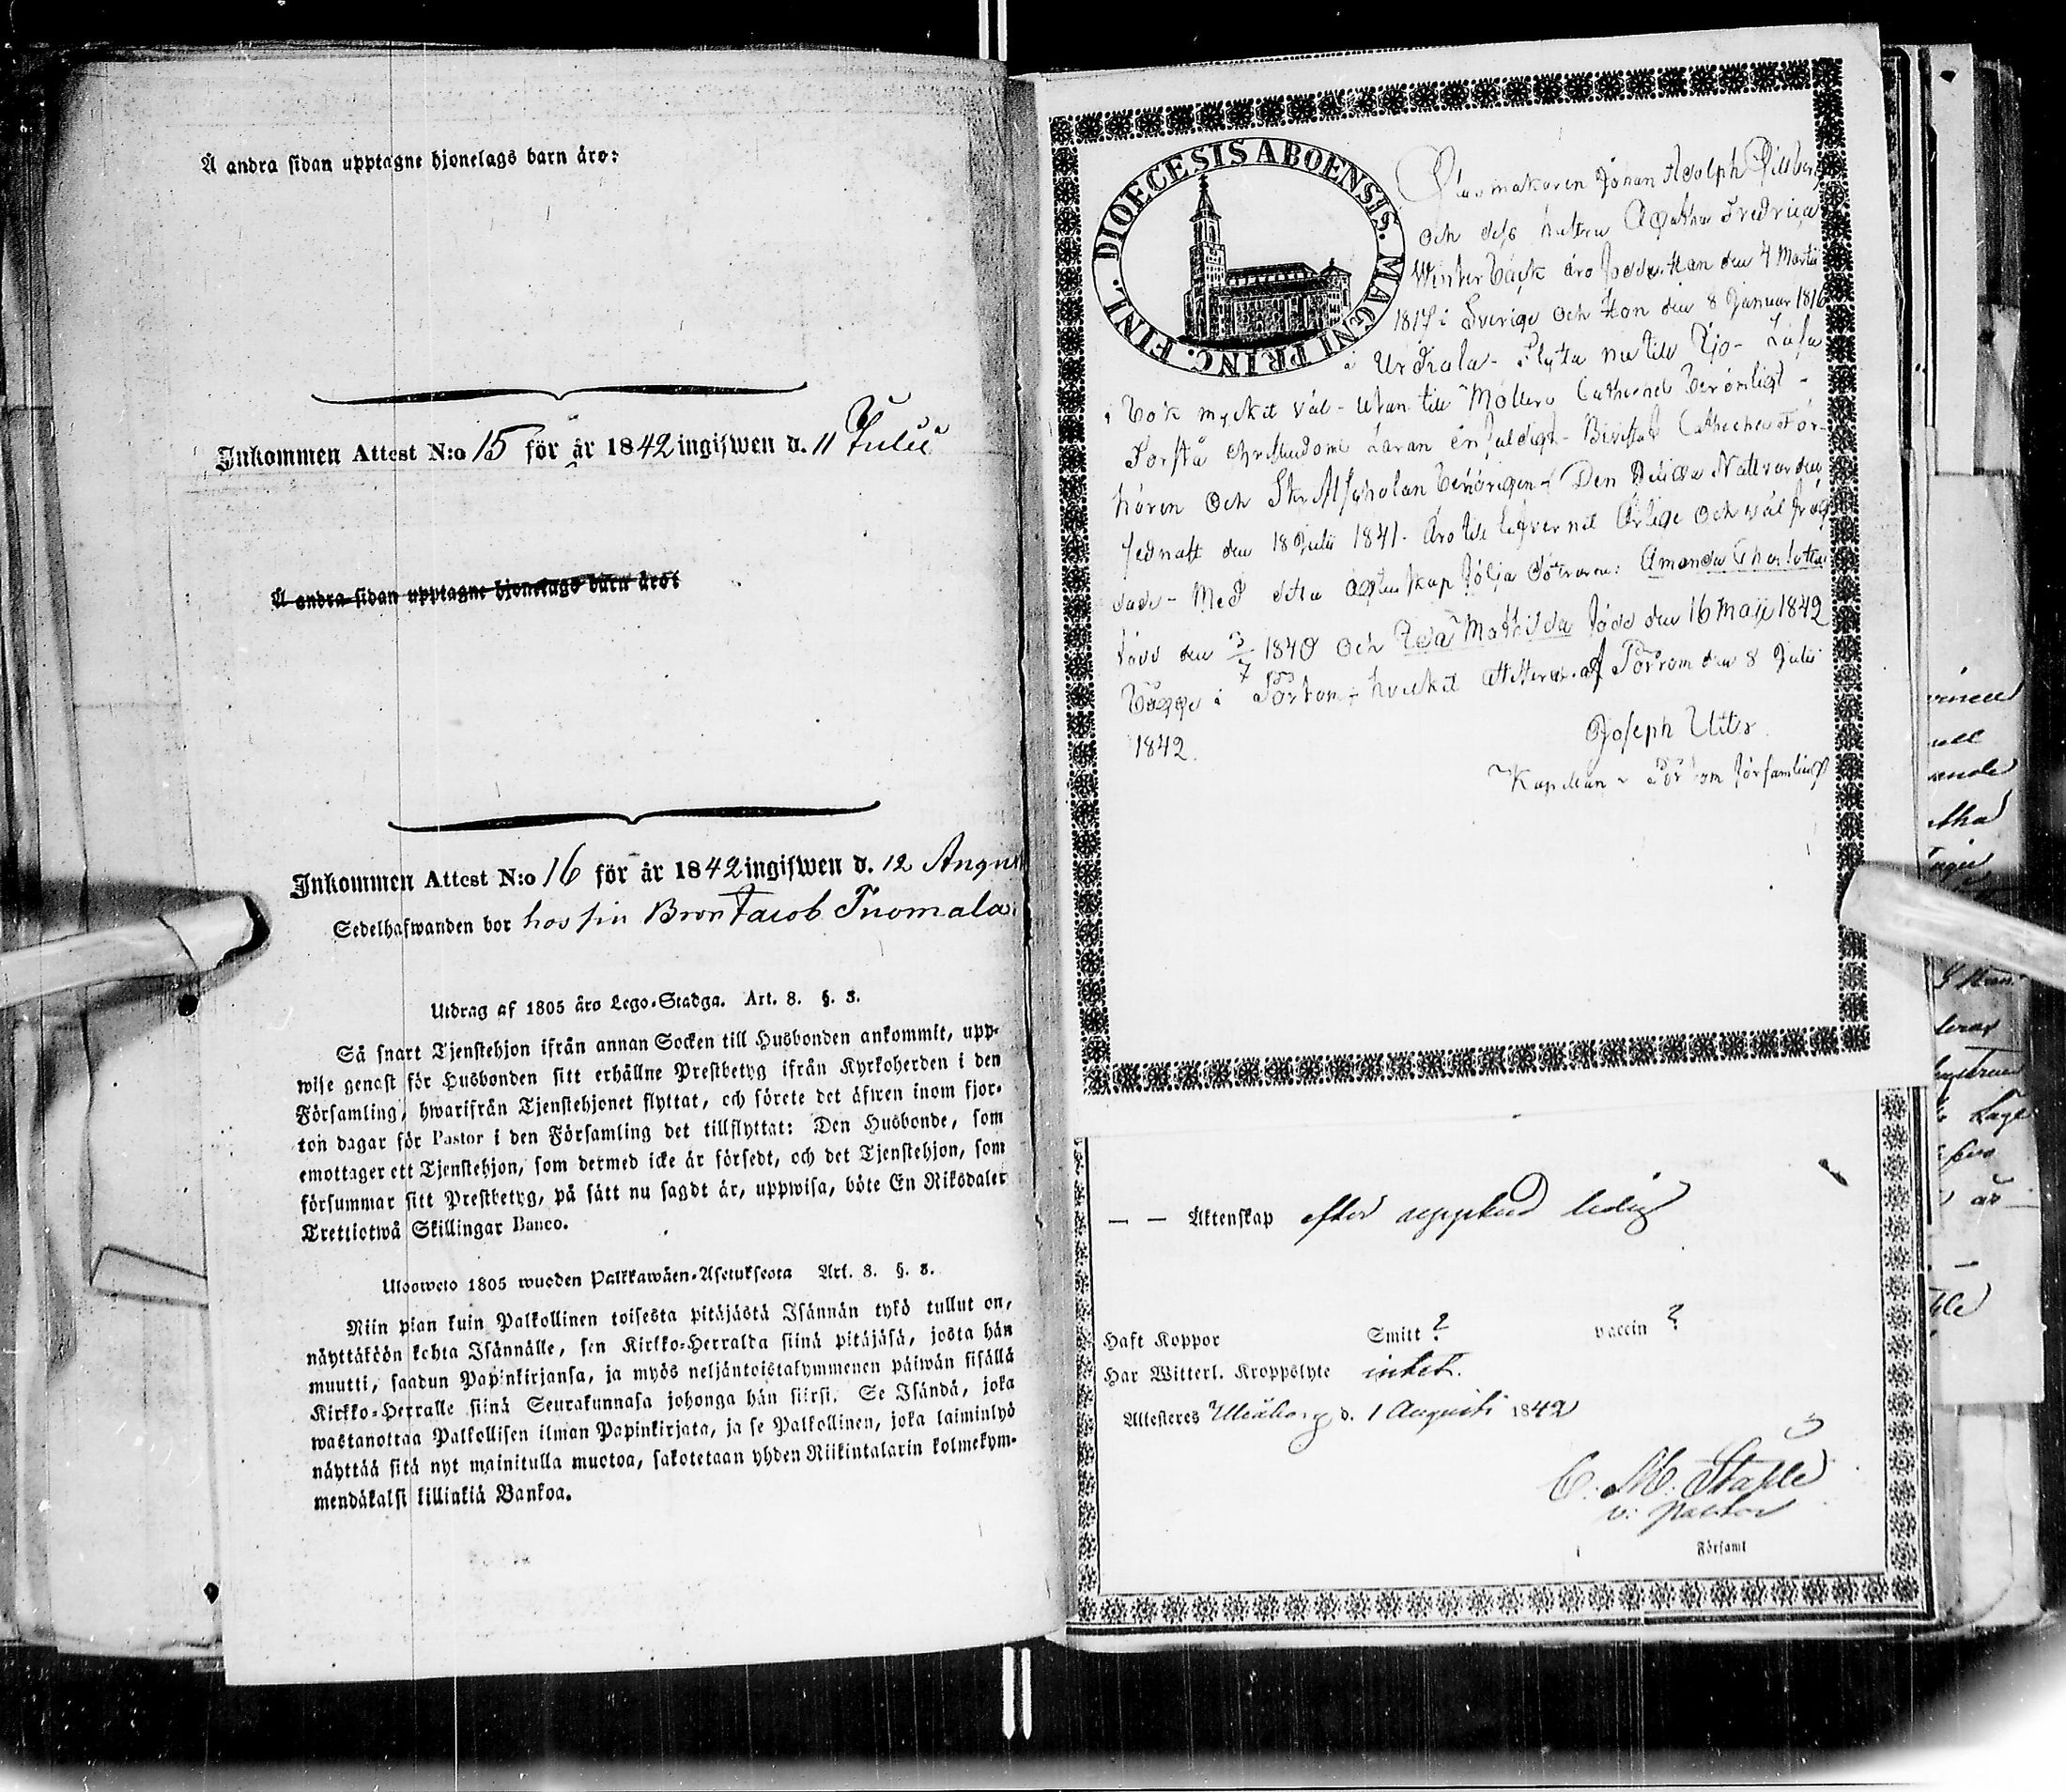 Å andra sidan upptagne hjonelags barn äro:
Inkommen Attest N:o 15 för år 1842 ingifwen d. 11 Julii
Å andra sidan upptagne hjonelags barn äro:
Inkommen Attest N:o 16 för år 1842 ingifwen d. 12 August
Sedelhafwanden bor hos sin Bror Jacob Tuomala.
Utdrag af 1805 års Lego-Stadga. Art. 8. §. 3.
Så snart Tjenstehjon ifrån annan Socken till Husbonden ankommit, upp-
wise genast för Husbonden sitt erhållne Prestbetyg ifrån Kyrkoherden i den
Församling, hwarifrån Tjenstehjonet flyttat, och förete det äfwen inom fjor-
ton dagar för Pastor i den Församling det tillflyttat: Den Husbonde, som
emottager ett Tjenstehjon, som dermed icke är försedt, och det Tjenstehjon, som
försummar sitt Prestbetyg, på sätt nu sagdt är, uppwisa, böte En Riksdaler
Trettiotwå Skillingar Banco.
Uloswето 1805 wuoden Palkkawäen-Asetuksesta Art. 8. §. 3.
Niin pian kuin Palkollinen toisesta pitäjästä Isännän tykö tullut on,
näyttäköön kohta Isännälle, sen Kirkko-Herralda siinä pitäjäsä, josta hän
muutti, saadun Papinkirjansa, ja myös neljäntoistakymmenen päiwän sisällä
Kirkko-Herralle siinä Seurakunnasa johonga hän siirsi. Se Isändä, joka
wastanottaa Palkollisen ilman Papinkirjata, ja se Palkollinen, joka laiminlyö
näyttää sitä nyt mainitulla muotoa, sakotetaan yhden Riikintalarin kolmekym-
mendäkaksi killinkiä Bankoa.
DIOECESIS ABOENSIS. MAGNI PRINC. FINL.
Glasmakaren Johan Adolph
och dess hustru Agatha Fredrica
Winterbäck äro födde. Han den 4 Martii
1817 i Sverige och Hon den 8 Januar 1816
i Urdiala - Flytta nu till - Läsa
i bok myckit väl - utan till Möllers Catheched berömligt -
Förstå christendoms Läran enfaldigt - Bivistat Cathechesi För-
hören och Skriftskolan behörigen - Den Heliga Nattvarden
sednast den 18 Julii 1841. Äro till lefvernet Ärlige och väl fräg
dade - Med detta Ägtenskap följa Döttrarne: Amanda Charlotta
född den 3/7 1840 och Ida Mathilda född den 16 Maji 1842
bägge i - hvilket attesterar. af den 8 Julii
1842.
Joseph
Kapellan i församling
— — Äktenskap efter uppgift ledig
Haft Koppor Smitt ? vaccin ?
Har Witterl. Kroppslyte intet.
Attesteres Uleåborg d. 1 Augusti 1842
C. M. Ståhle
v: Pastor
Församl